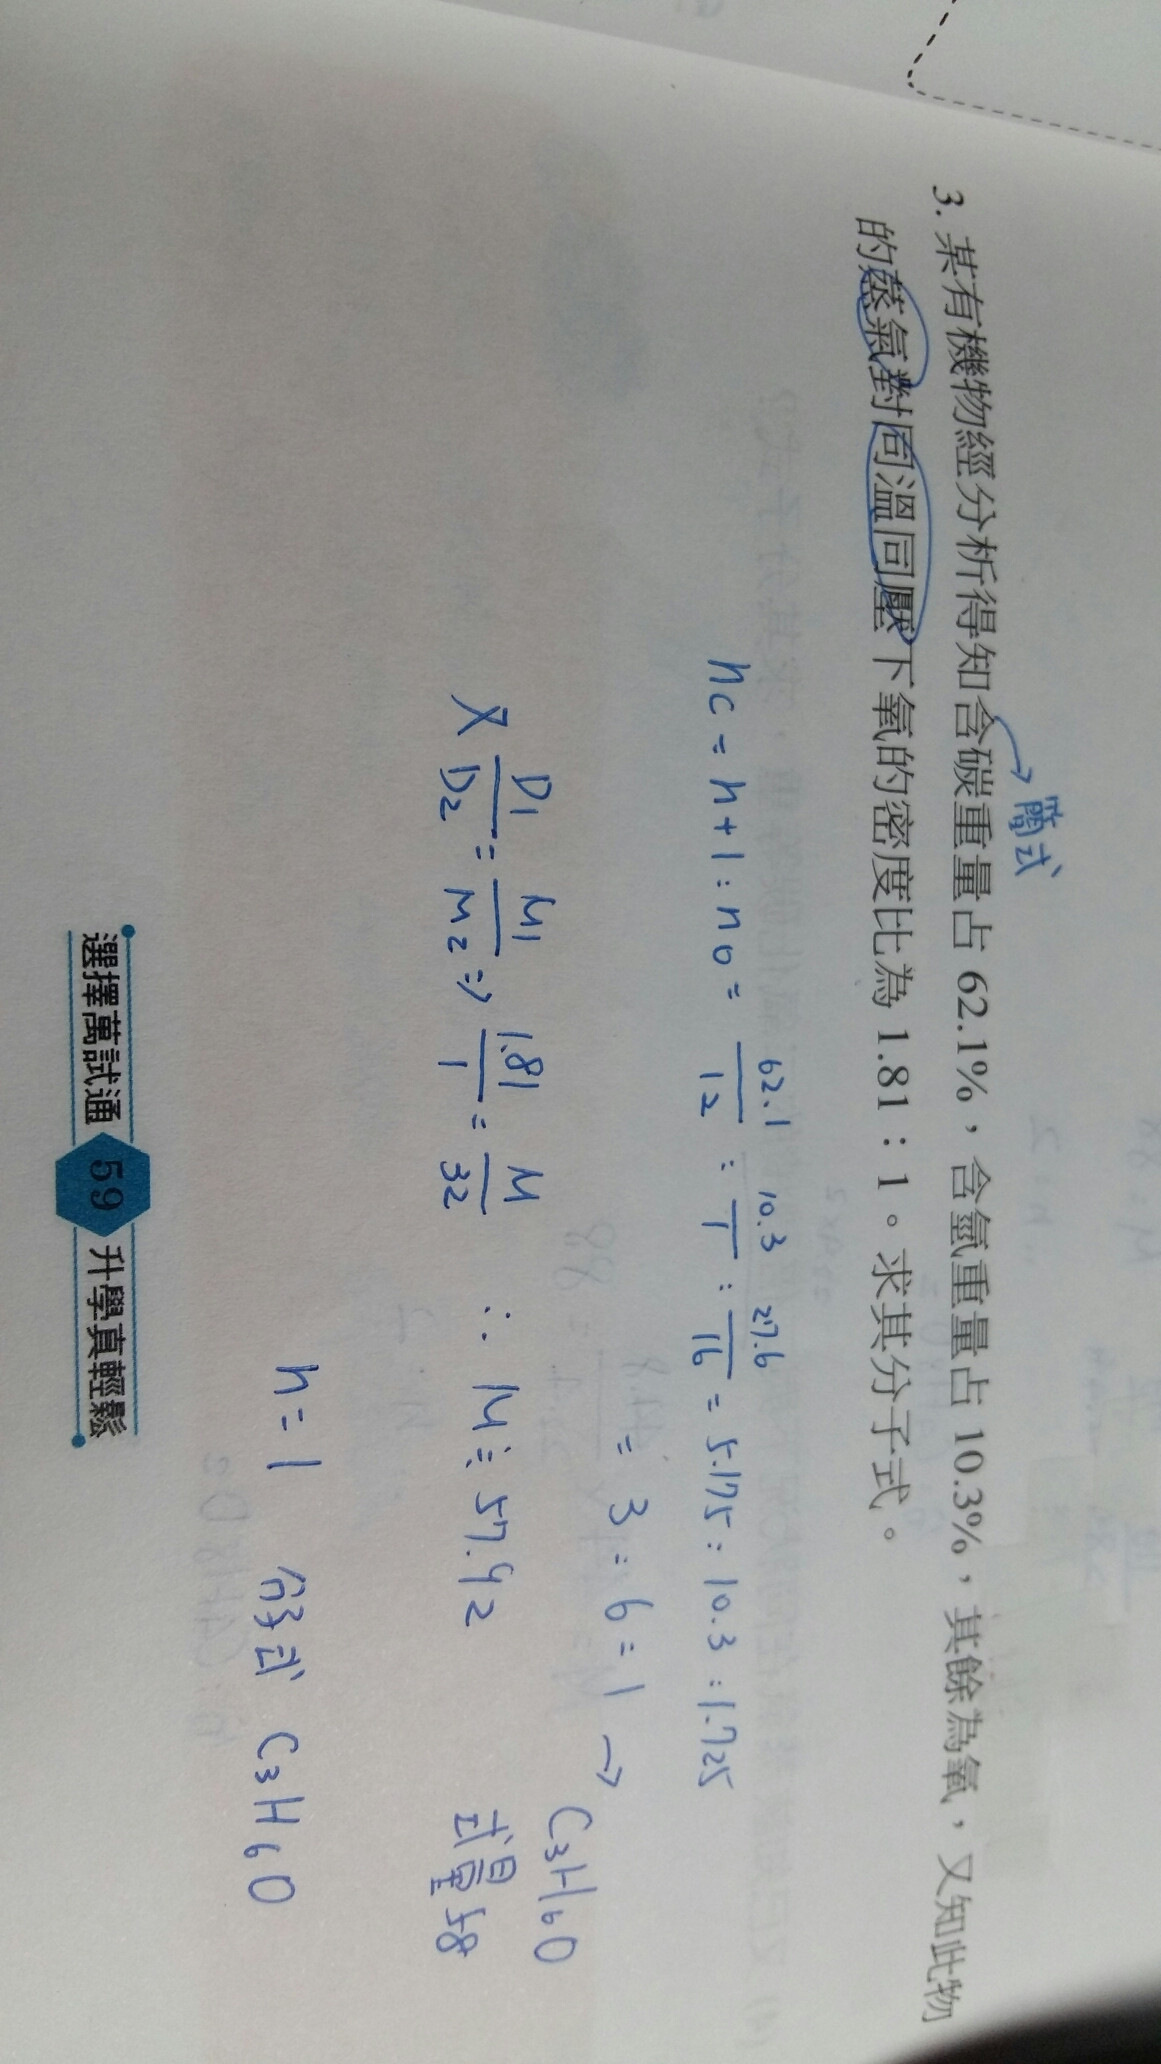 3. 某有機物經分析得知含碳重量占 62.1%，含氫重量占 10.3%，其餘為氧，又知此物
的蒸氣對同溫同壓下氧的密度比為 1.81：1。求其分子式。
→簡式
nC = n+1 : nO = 62.1/12 : 10.3/1 : 27.6/16 = 5.175 : 10.3 : 1.725
= 3 = 6 = 1 → C3H6O
式量 58
又 D1/D2 = M1/M2 => 1.81/1 = M/32 ∴ M ≒ 57.92
n = 1 分子式 C3H6O
選擇萬試通 59 升學真輕鬆